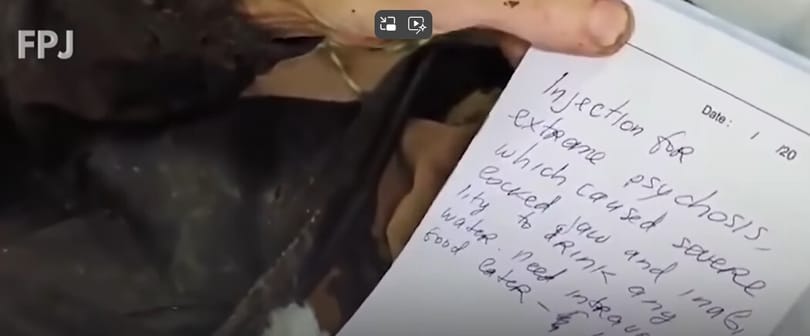 FPJ
Date: / /20
Injection for
extreme psychosis,
which caused severe
locked jaw and inabi
lity to drink any
water. need intrave
food later –